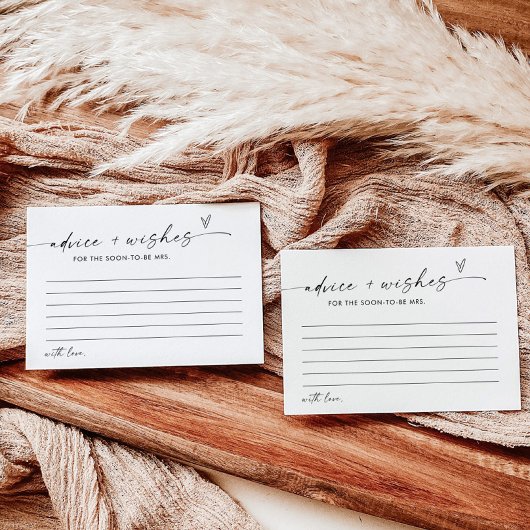 advice + wishes
FOR THE SOON-TO-BE MRS.
with love,
advice + wishes
FOR THE SOON-TO-BE MRS.
with love,